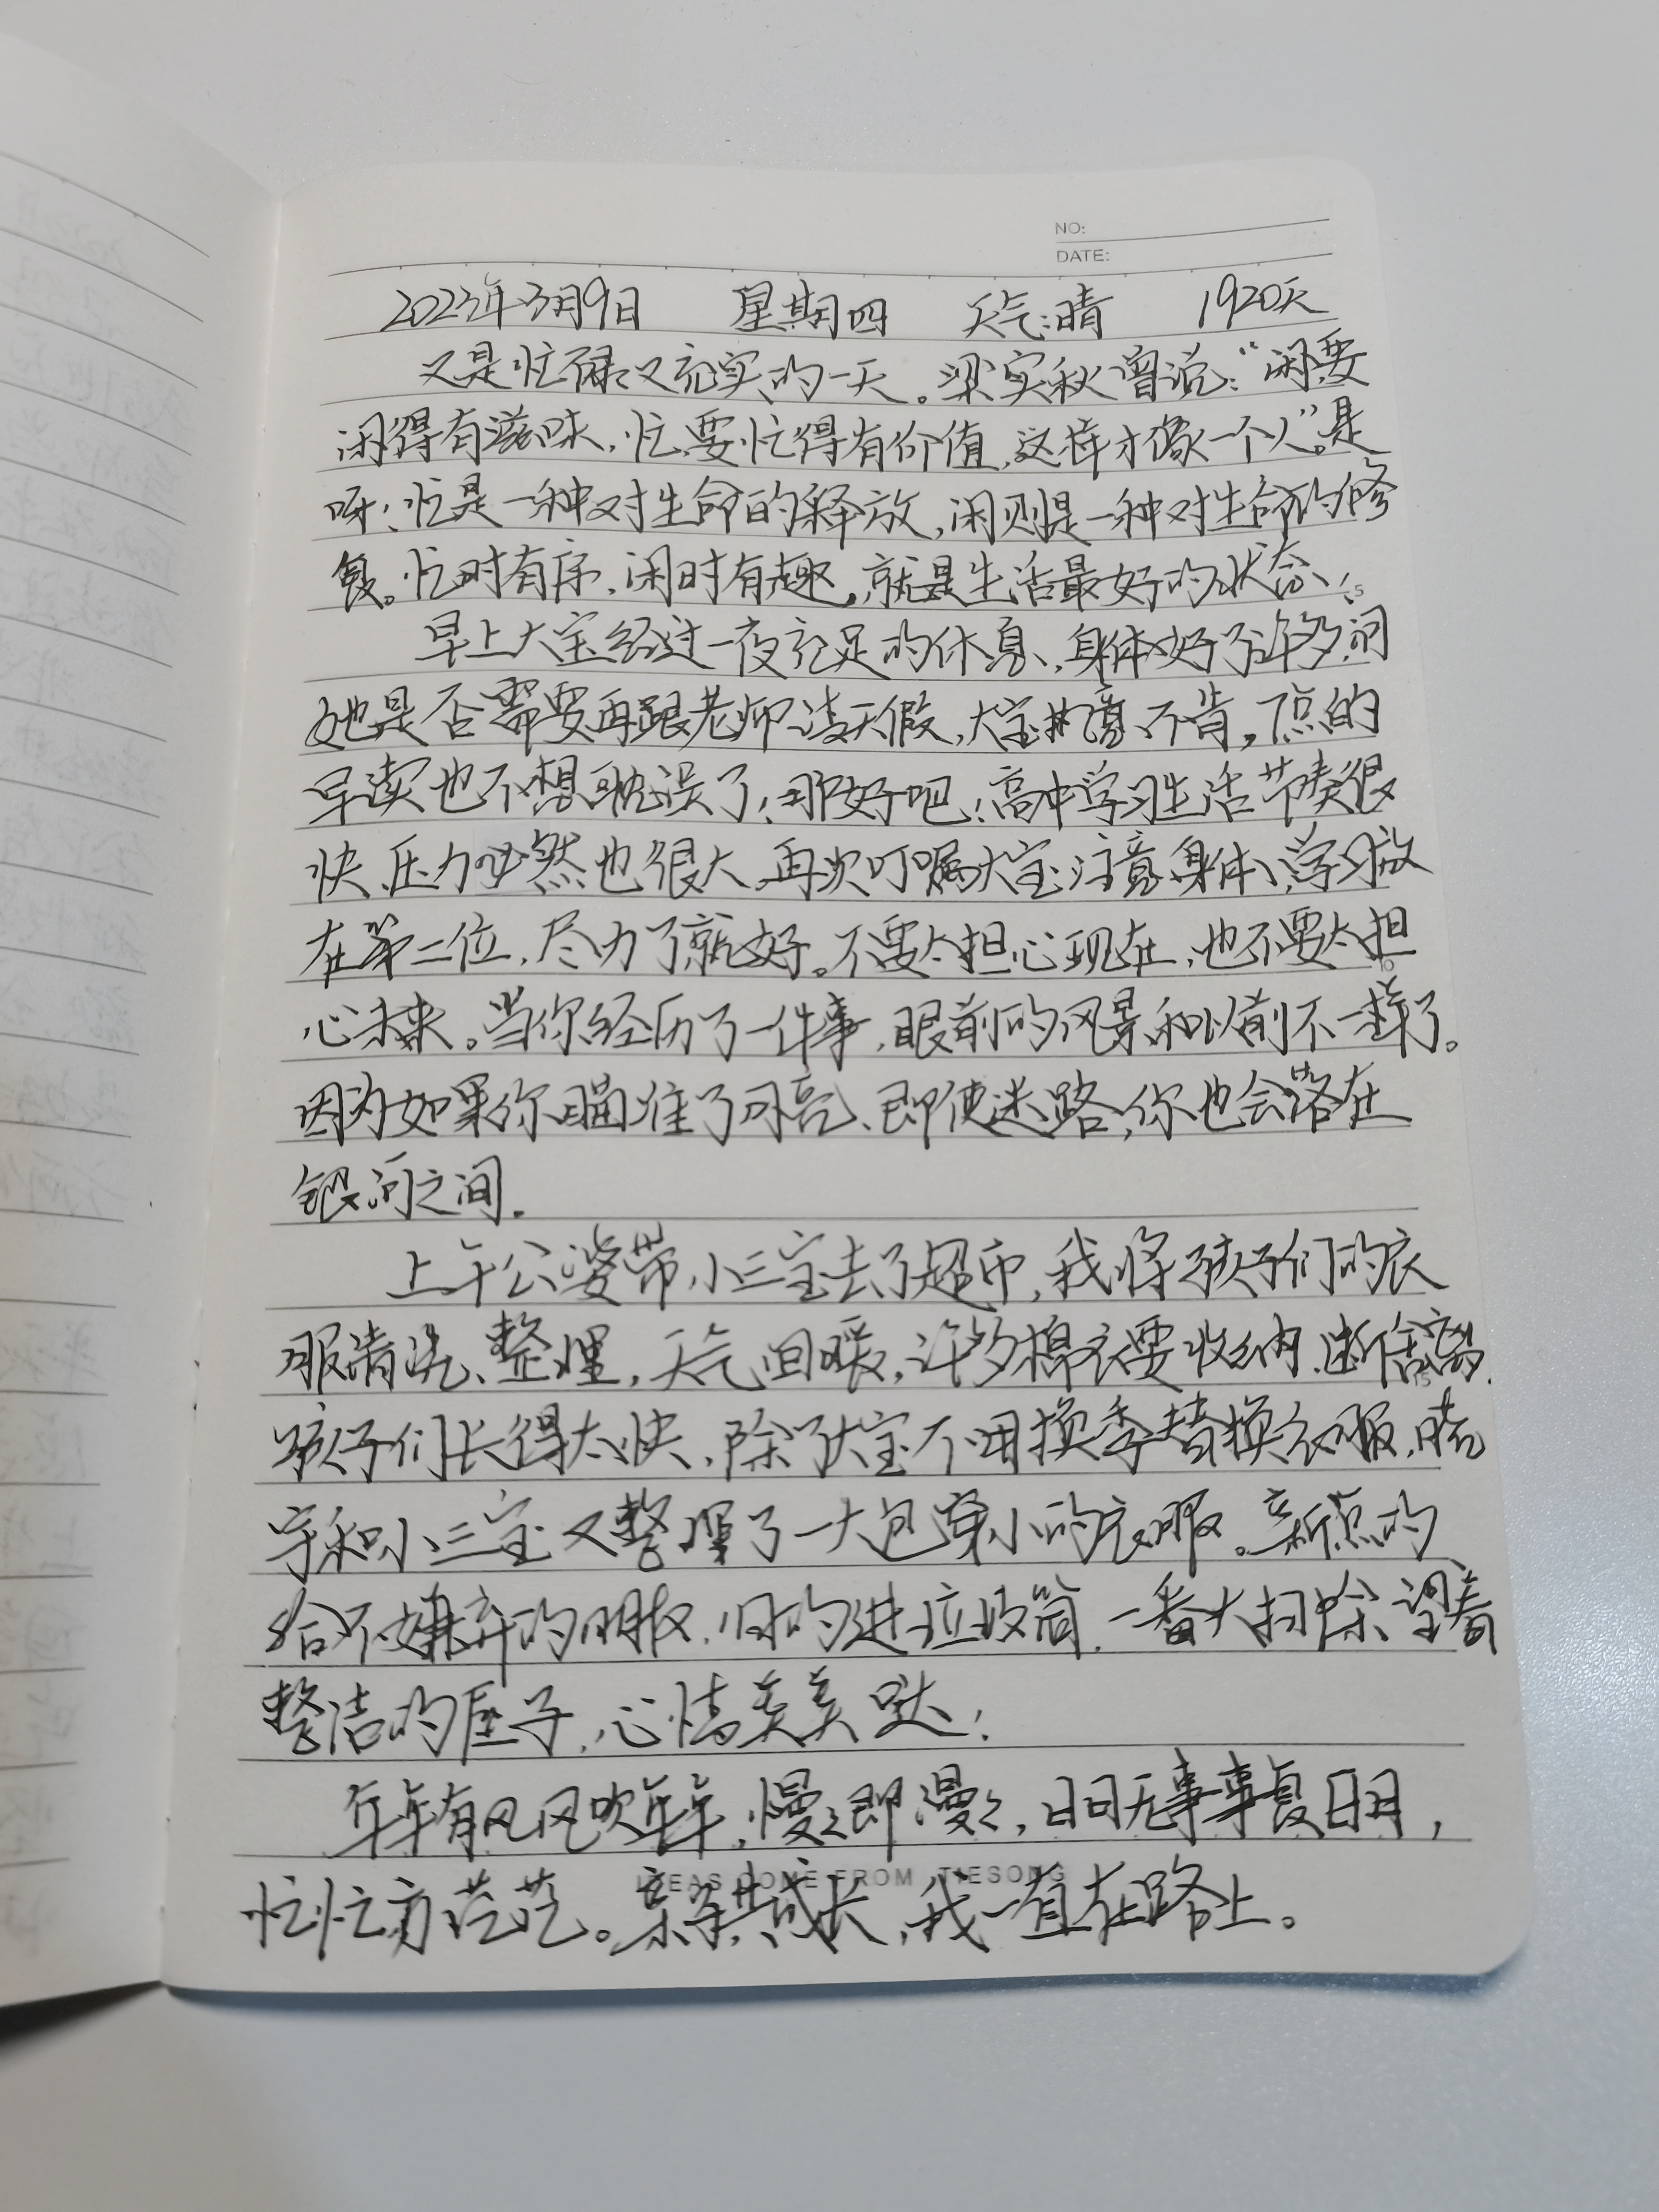 NO:
DATE:
2023年3月9日 星期四 天气:晴 1920天
又是忙碌又充实的一天。梁实秋曾说:“闲要
闲得有滋味,忙要忙得有价值,这样才像一个人”。是
呀!忙是一种对生命的释放,闲则是一种对生命的修
复。忙时有序,闲时有趣,就是生活最好的状态!
早上大宝经过一夜充足的休息,身体好了许多,问
她是否需要再跟老师请天假,大宝执意不肯,丁点的
早读也不想耽误了!那好吧!高中学习生活节奏很
快、压力必然也很大,再次叮嘱大宝注意身体,学习放
在第二位,尽力了就好。不要太担心现在,也不要太担
心未来。当你经历了一件事,眼前的风景和以前不一样了。
因为如果你瞄准了月亮、即使迷路,你也会落在
银河之间。
上午公婆带小三宝去了超市,我将孩子们的衣
服清洗、整理,天气回暖,许多棉衣要收纳、断舍离,
孩子们长得太快,除了大宝不用换季替换衣服,晓
宇和小三宝又整理了一大包穿小的衣服。新点的
给不嫌弃的朋友,旧的进垃圾筒,一番大扫除、望着
整洁的屋子,心情美美哒!
年年有风风吹年年,慢慢即漫漫,日日无事事复日日,
忙忙亦茫茫。亲子共成长,我一直在路上。
IDEAS COME FROM TIESONG